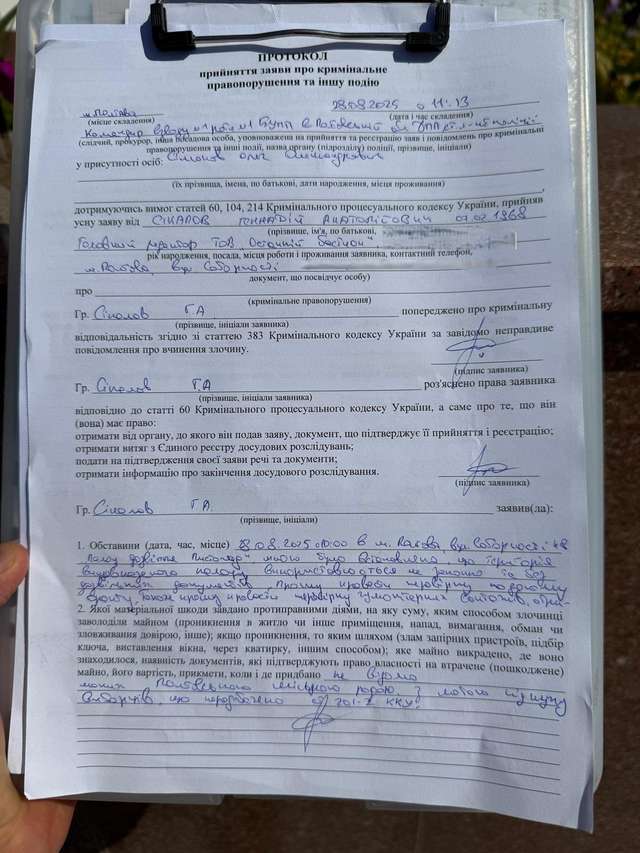 ПРОТОКОЛ
прийняття заяви про кримінальне
правопорушення та іншу подію
м. Полтава
28.08.2025 о 11:13
(місце складення)
(дата і час складення)
Командир взводу №1 роти №1 в Полтавській
(слідчий, прокурор, інша посадова особа, уповноважена на прийняття та реєстрацію заяв і повідомлень про кримінальні
правопорушення та інші події, назва органу (підрозділу) поліції, прізвище, ініціали)
у присутності осіб: Олег Олександрович
(їх прізвища, імена, по батькові, дати народження, місця проживання)
дотримуючись вимог статей 60, 104, 214 Кримінального процесуального кодексу України, прийняв
усну заяву від СІКАЛОВ ГЕННАДІЙ АНАТОЛІЙОВИЧ 07.02 1968
(прізвище, ім'я, по батькові,
Головний редактор ТОВ „Останній Бастіон"
рік народження, посада, місця роботи і проживання заявника, контактний телефон,
м. Полтава, вул. Соборності
документ, що посвідчує особу)
про
(кримінальне правопорушення)
Гр. Сікалов Г.А. попереджено про кримінальну
(прізвище, ініціали заявника)
відповідальність згідно зі статтею 383 Кримінального кодексу України за завідомо неправдиве
повідомлення про вчинення злочину.
(підпис заявника)
Гр. Сікалов Г.А роз'яснено права заявника
(прізвище, ініціали заявника)
відповідно до статті 60 Кримінального процесуального кодексу України, а саме про те, що він
(вона) має право:
отримати від органу, до якого він подав заяву, документ, що підтверджує її прийняття і реєстрацію;
отримати витяг з Єдиного реєстру досудових розслідувань;
подати на підтвердження своєї заяви речі та документи;
отримати інформацію про закінчення досудового розслідування.
(підпис заявника)
Гр. Сікалов Г.А. заявив(ла):
(прізвище, ініціали)
1. Обставини (дата, час, місце) 28.08.2025 10:00 в м. Полтава, вул. Соборності
було встановлено що територія
використовується не законно та без
документів. Прошу провести перевірку по даному
факту, також прошу провести перевірку
2. Якої матеріальної шкоди завдано протиправними діями, на яку суму, яким способом злочинці
заволоділи майном (проникнення в житло чи інше приміщення, напад, вимагання, обман чи
зловживання довірою, інше); якщо проникнення, то яким шляхом (злам запірних пристроїв, підбір
ключа, виставлення вікна, через кватирку, іншим способом); яке майно викрадено, де воно
знаходилося, наявність документів, які підтверджують право власності на втрачене (пошкоджене)
майно, його вартість, прикмети, коли і де придбано не відомо
Полтавською міською радою з метою підкупу
виборців, що передбачено 201-2 ККУ